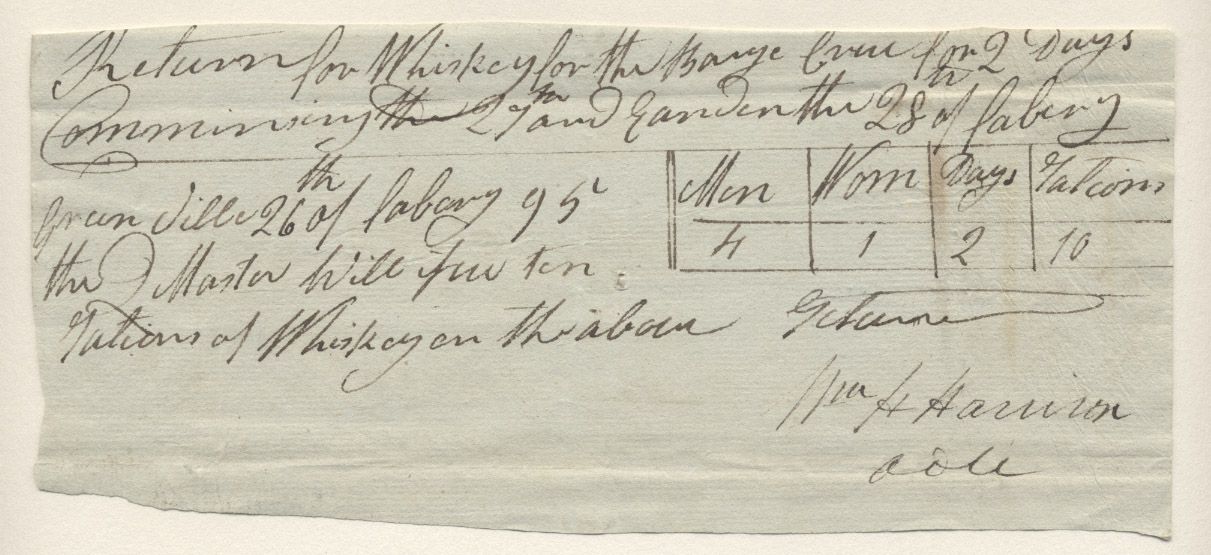 Return for Whiskey for the Barge Crue for 2 Days
Comminsing the 27th and Eanden the 28th of fabery
Men Wom Days Rations
4 1 2 10
Green Ville 26th of fabery 95
the Q Master Will isue ten
Rations of Whiskey on the aboue Return
Wm H Harrison
ADC